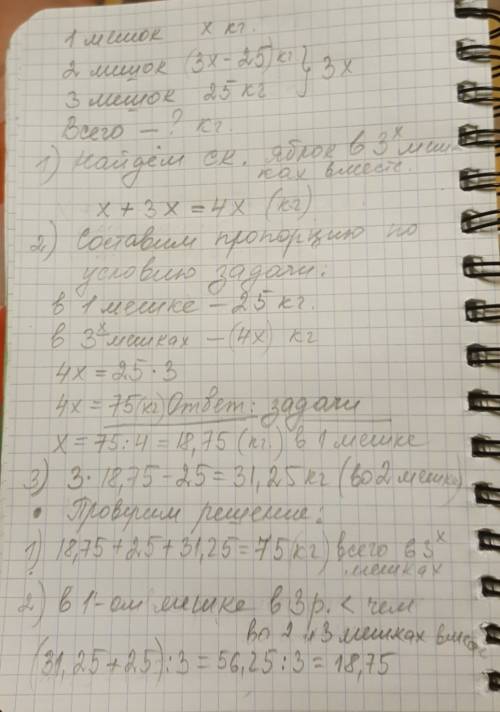 1 мешок x кг.
2 мешок (3x-25) кг } 3x
3 мешок 25 кг
Всего — ? кг.
1) Найдём ск. яблок в 3х меш-
ках вместе.
x + 3x = 4x (кг)
2) Составим пропорцию по
условию задачи:
в 1 мешке — 25 кг.
в 3х мешках — (4x) кг
4x = 25·3
4x = 75(кг) Ответ: задачи
x = 75:4 = 18,75 (кг.) в 1 мешке
3) 3·18,75-25 = 31,25 кг (во 2 мешке)
• Проверим решение:
1) 18,75+25+31,25=75(кг) всего в 3х
мешках
2) в 1-ом мешке в 3 р. < чем
во 2 и 3 мешках вместе
(31,25+25):3 = 56,25:3 = 18,75